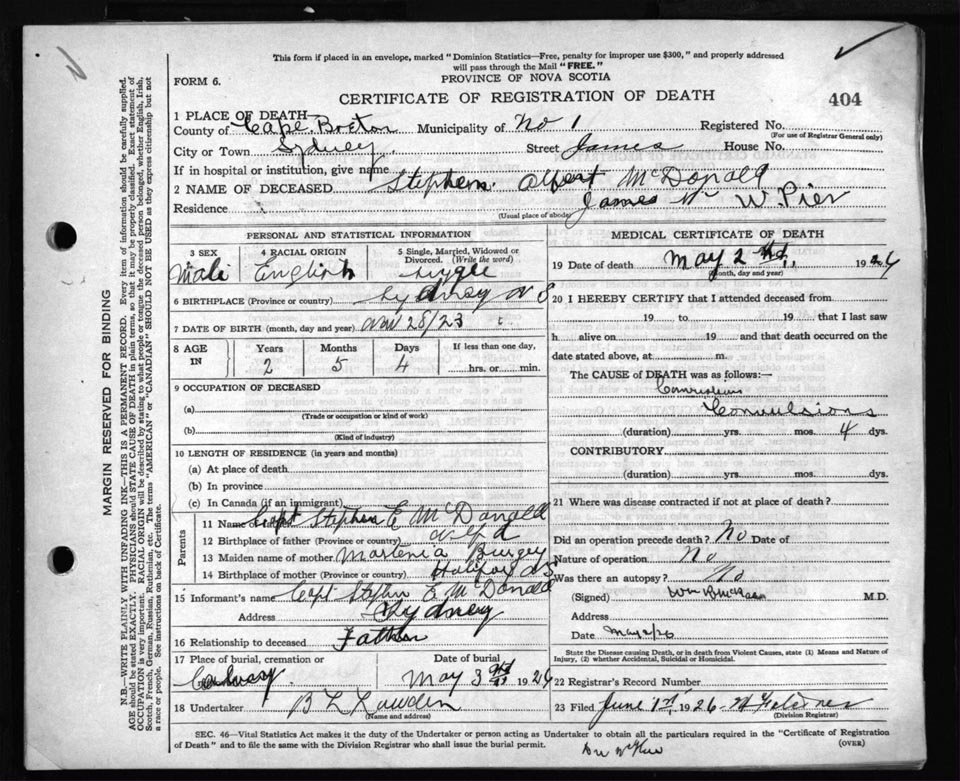 This form if placed in an envelope, marked "Dominion Statistics—Free, penalty for improper use $300," and properly addressed
will pass through the Mail "FREE."
FORM 6.
PROVINCE OF NOVA SCOTIA
CERTIFICATE OF REGISTRATION OF DEATH
404
1 PLACE OF DEATH—
County of Cape Breton Municipality of No 1 Registered No.
(For use of Registrar General only)
City or Town Sydney Street James House No.
If in hospital or institution, give name
2 NAME OF DECEASED Stephen Albert McDonald
Residence James W. Pier
(Usual place of abode)
PERSONAL AND STATISTICAL INFORMATION
3 SEX
Male
4 RACIAL ORIGIN
English
5 Single, Married, Widowed or
Divorced. (Write the word)
Single
6 BIRTHPLACE (Province or country) Sydney N S
7 DATE OF BIRTH (month, day and year) Nov 28/23
8 AGE
IN
Years
2
Months
5
Days
4
If less than one day,
hrs. or min.
9 OCCUPATION OF DECEASED
(a)
(Trade or occupation or kind of work)
(b)
(Kind of industry)
10 LENGTH OF RESIDENCE (in years and months)
(a) At place of death
(b) In province
(c) In Canada (if an immigrant)
Parents
11 Name of father Capt Stephen E McDonald
12 Birthplace of father (Province or country) Nfd
13 Maiden name of mother Burgey
14 Birthplace of mother (Province or country) Halifax NS
15 Informant's name Capt Stephen E McDonald
Address Sydney
16 Relationship to deceased Father
17 Place of burial, cremation or
Calvary
Date of burial
May 3rd 1926
18 Undertaker B L
(Name and address)
MEDICAL CERTIFICATE OF DEATH
19 Date of death May 2nd 1926
(Month, day and year)
20 I HEREBY CERTIFY that I attended deceased from
19 to 19 that I last saw
h alive on 19 and that death occurred on the
date stated above, at m.
The CAUSE of DEATH was as follows:—
Convulsions
(duration) yrs. mos. 4 dys.
CONTRIBUTORY
(duration) yrs. mos. dys.
21 Where was disease contracted if not at place of death?
Did an operation precede death? No Date of
Nature of operation No
Was there an autopsy? No
(Signed) M.D.
Address
Date May 2/26
State the Disease causing Death, or in death from Violent Causes, state (1) Means and Nature of
Injury, (2) whether Accidental, Suicidal or Homicidal.
22 Registrar's Record Number
23 Filed June 1st 1926
(Division Registrar)
SEC. 46—Vital Statistics Act makes it the duty of the Undertaker or person acting as Undertaker to obtain all the particulars required in the "Certificate of Registration
of Death" and to file the same with the Division Registrar who shall issue the burial permit.
(OVER)
MARGIN RESERVED FOR BINDING
N.B.—WRITE PLAINLY, WITH UNFADING INK—THIS IS A PERMANENT RECORD. Every item of information should be carefully supplied.
AGE should be stated EXACTLY. PHYSICIANS should STATE CAUSE OF DEATH in plain terms, so that it may be properly classified. Exact statement of
OCCUPATION is very important. RACIAL ORIGIN will be described by stating to what people or tongue the deceased person belonged, whether English, Irish,
Scotch, French, German, Russian, Ruthenian, etc. The terms "AMERICAN" or "CANADIAN" SHOULD NOT BE USED as they express citizenship but not
a race or people. See instructions on back of Certificate.